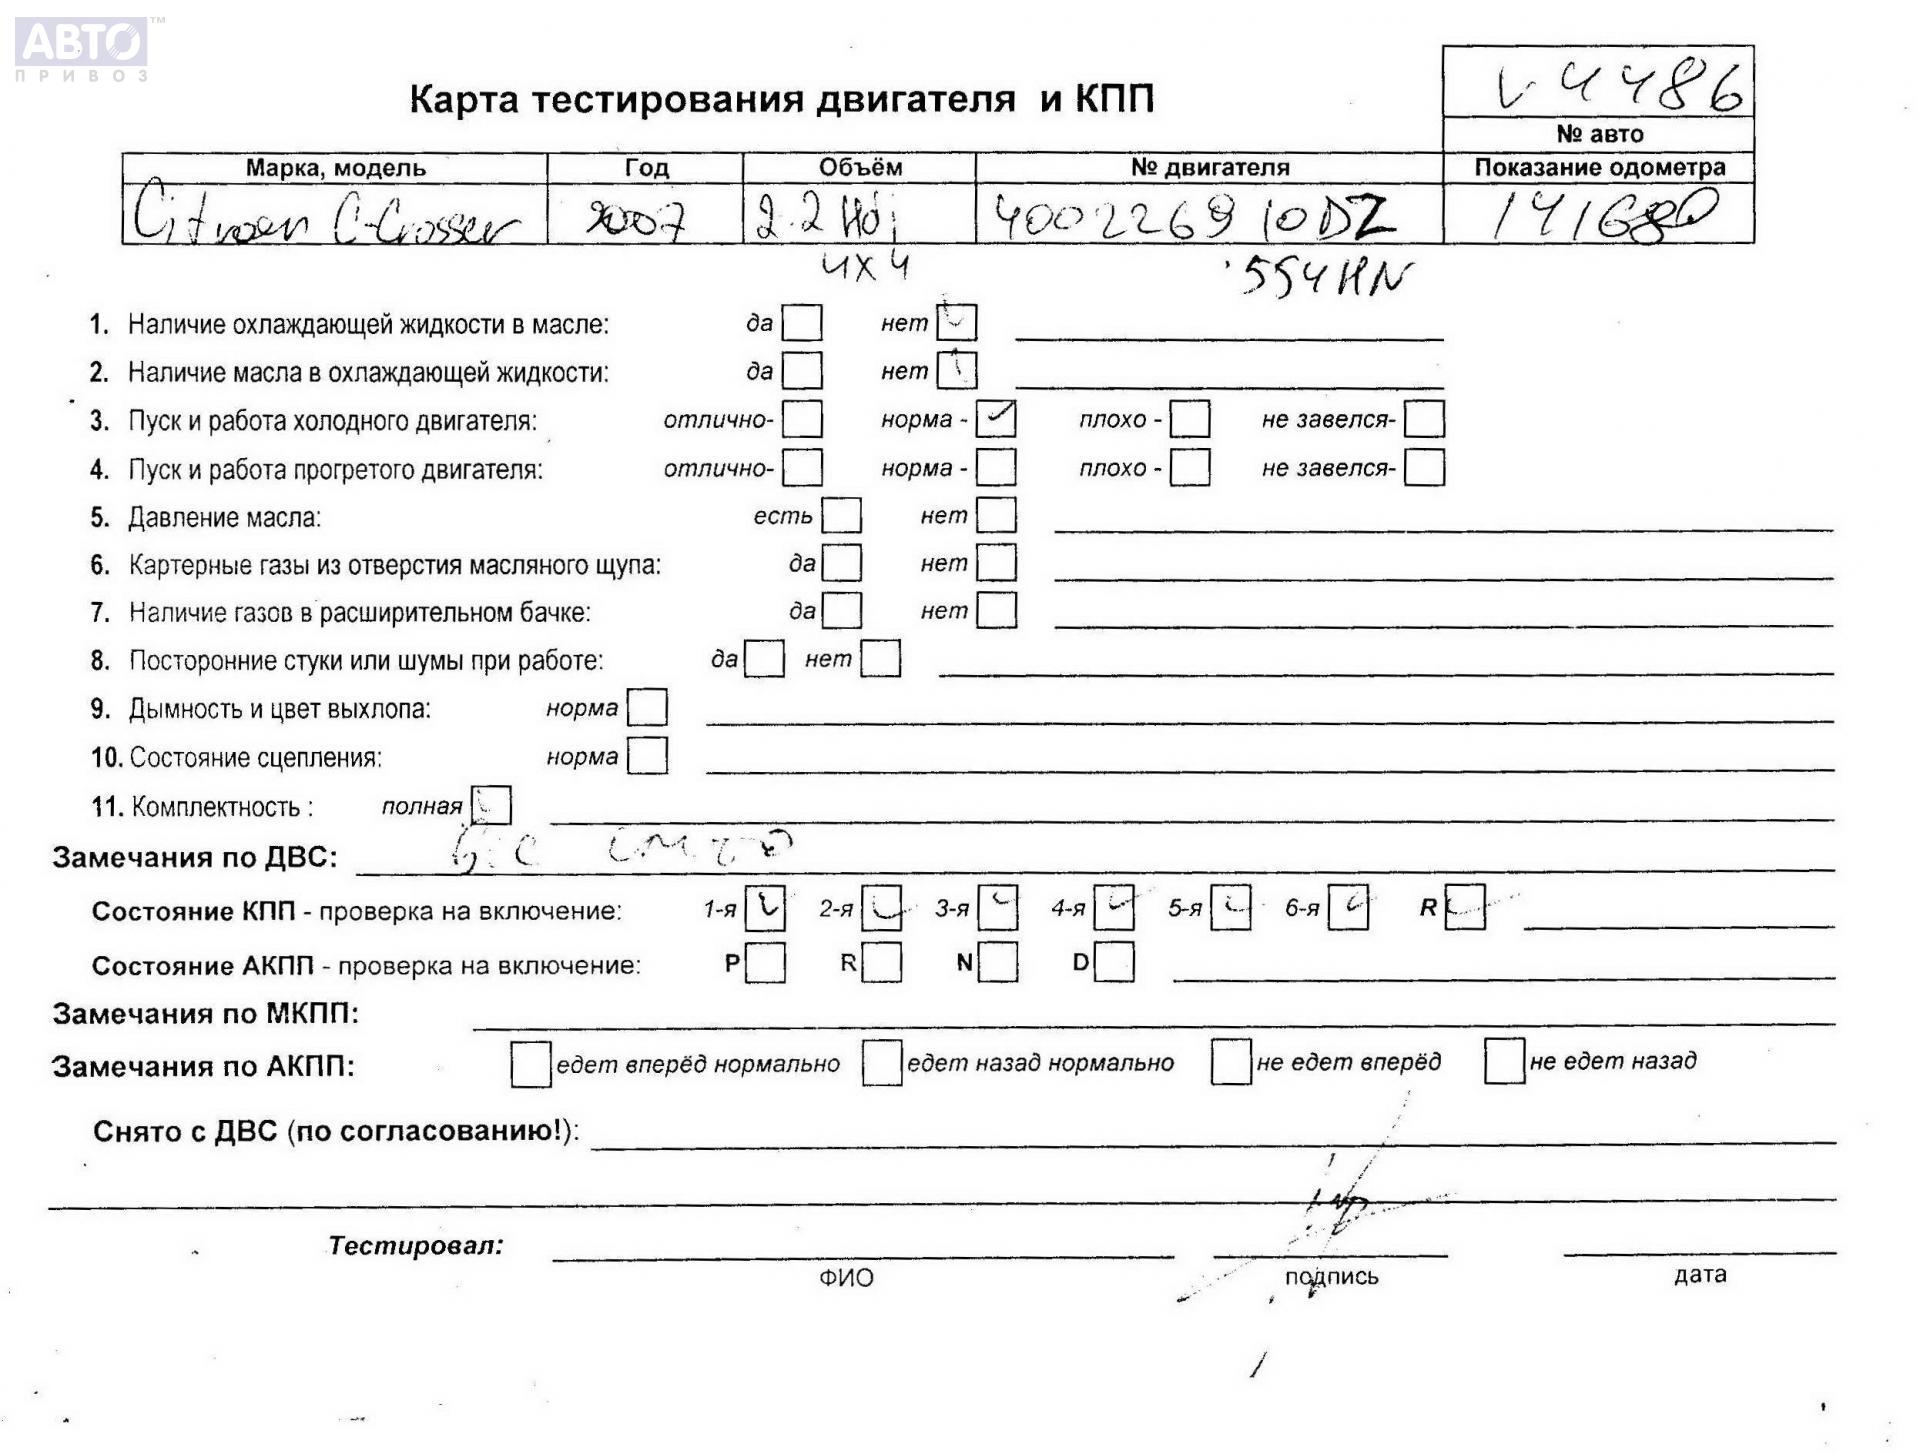 АВТО™
ПРИВОЗ
V4486
Карта тестирования двигателя и КПП
№ авто
Марка, модель Год Объём № двигателя Показание одометра
Citroen C-Crosser 2007 2.2 Hdi 4002269 10DZ 141680
4x4 554HN
1. Наличие охлаждающей жидкости в масле: да нет
2. Наличие масла в охлаждающей жидкости: да нет
3. Пуск и работа холодного двигателя: отлично- норма - плохо - не завелся-
4. Пуск и работа прогретого двигателя: отлично- норма - плохо - не завелся-
5. Давление масла: есть нет
6. Картерные газы из отверстия масляного щупа: да нет
7. Наличие газов в расширительном бачке: да нет
8. Посторонние стуки или шумы при работе: да нет
9. Дымность и цвет выхлопа: норма
10. Состояние сцепления: норма
11. Комплектность : полная
Замечания по ДВС:
Состояние КПП - проверка на включение: 1-я 2-я 3-я 4-я 5-я 6-я R
Состояние АКПП - проверка на включение: P R N D
Замечания по МКПП:
Замечания по АКПП: едет вперёд нормально едет назад нормально не едет вперёд не едет назад
Снято с ДВС (по согласованию!):
Тестировал:
ФИО подпись дата